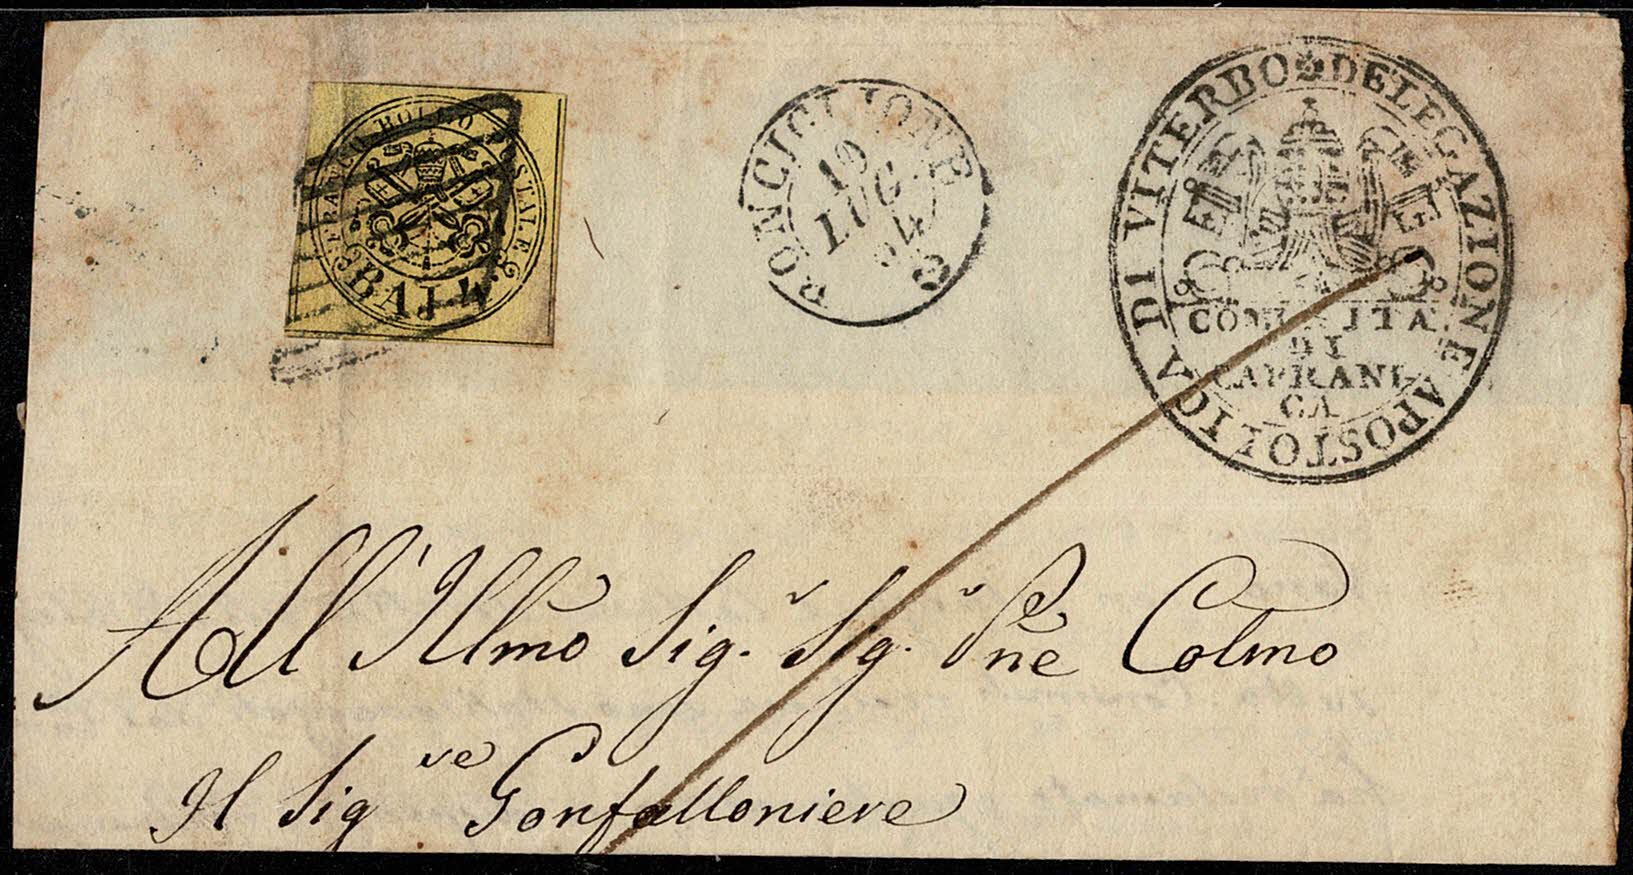 FRANCO BOLLO POSTALE
BAJ. 4.
RONCIGLIONE
19
LUG
54
DELEGAZIONE APOSTOLICA DI VITERBO
COMUNITA
DI
CAPRANI
CA
All' Illmo Sig.r Sig.r Pne Colmo
Il Sigre Gonfalloniere